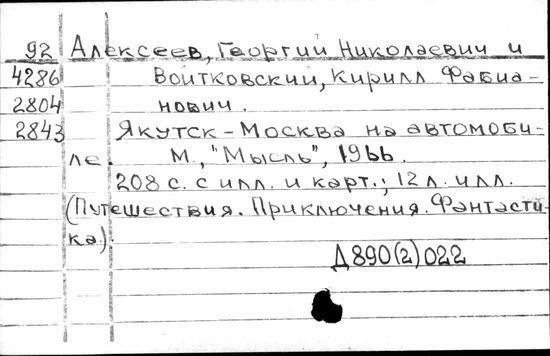 92 Алексеев, Георгий Николаевич и
4286 Войтковский, Кирилл Фабиа-
2804 нович.
2843 Якутск-Москва на автомоби-
ле. М., "Мысль", 1966.
208 с. с илл. и карт.; 12 л. илл.
(Путешествия. Приключения. Фантасти-
ка).
Д890(2)022